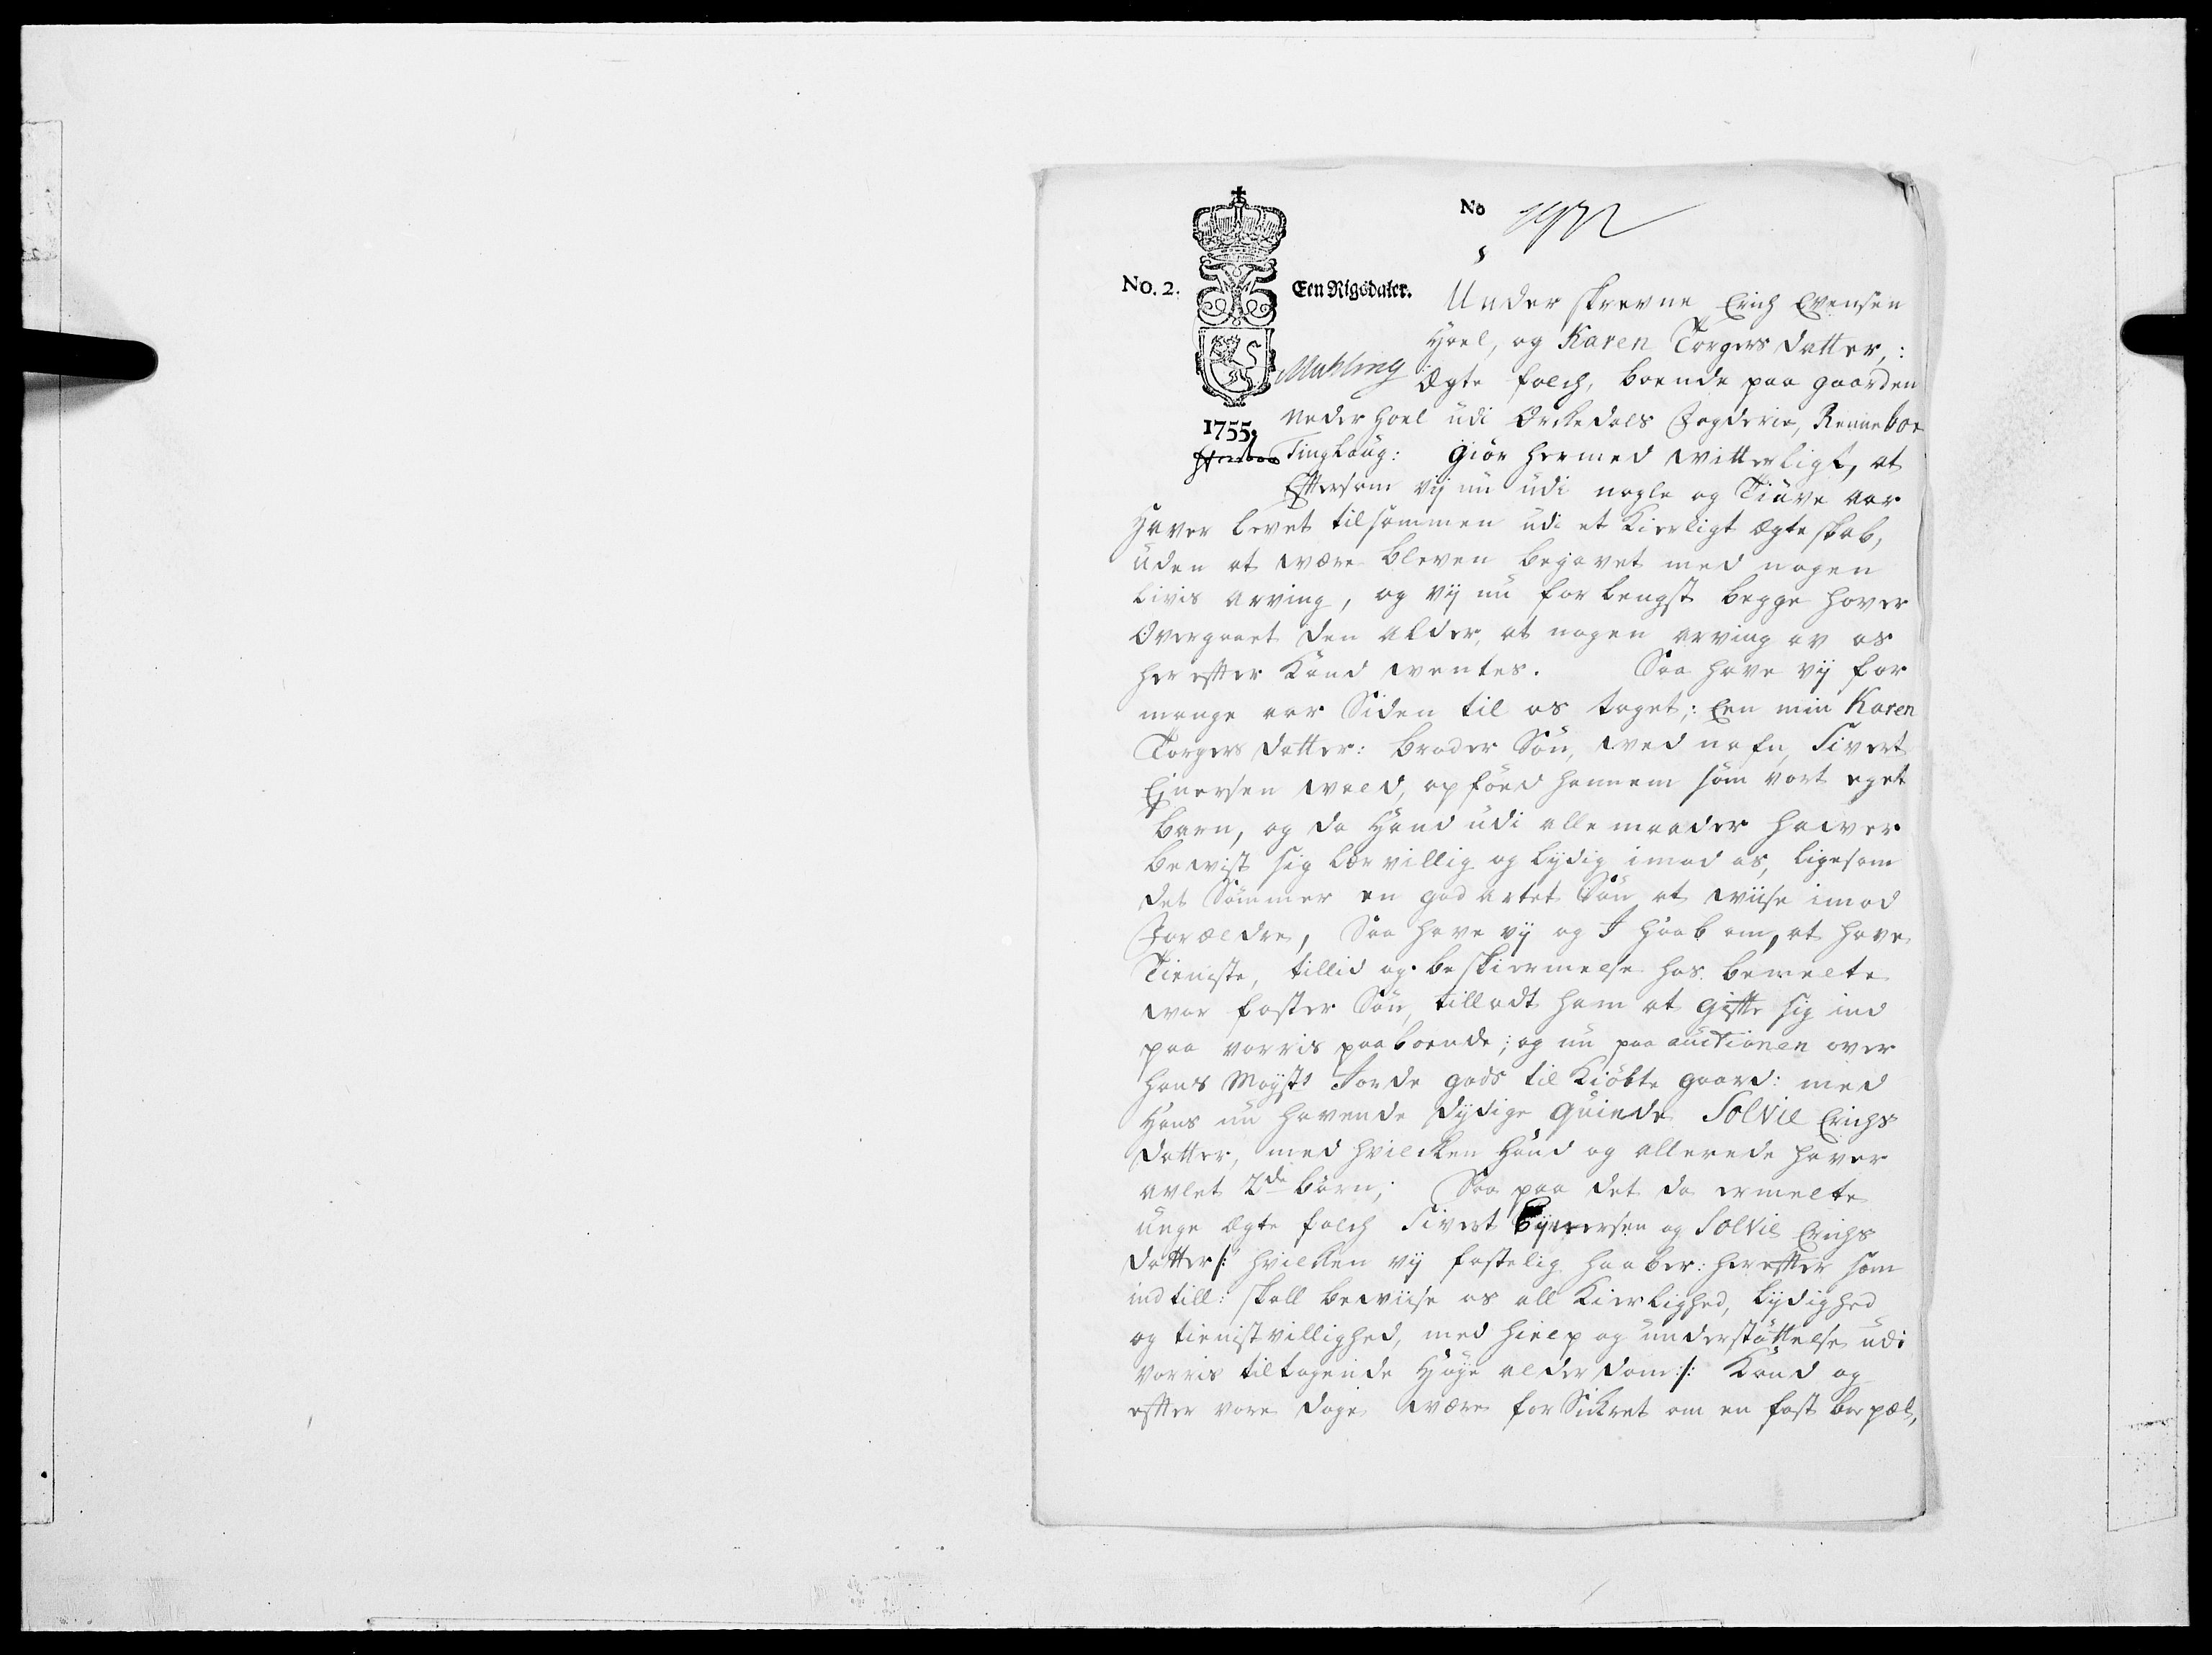 No
No. 2.
Een Rigsdaler.
Under skrevne Erich Evensen
Hoel, og Karen Torgers datter,:
Mühling
Ægte folch, boende paa gaarden
neder Hoel udi Orckedals Fogderie, Renneboe
1755.
Tinglaug: giör hermed witterligt, at
Efftersom vij nu udi nogle og Tiuve aar
Haver levet tilsammen udi et Kierligt Ægteskab,
uden at være bleven begavet med nogen
livis arving, og vij nu for lengst begge haver
Overgaaet den alder, at nogen arving av os
her effter Kand wentes. Saa have vij for
mange aar Siden til os taget; Een min Karen
Torgers datter: broder Sön, wed nafn, Sivert
Ejnersen wold, opföed hannem som vort eget
barn, og da Hand udi alle maader hawer
bewist sig lærvillig og lydig imod os, ligesom
det Sömmer en god artet Sön at wiise imod
Forældre, Saa have vij og I Haab om, at have
Tieniste, tillid og beskiermelse hos bemelte
wor foster Sön, tilladt ham at giffte sig ind
paa vorris paaboende; og nu paa auctionen over
hans Mayst's Jorde gods til Kiöbte gaard: med
Hans nu havende dydige Quinde Solvie Erichs
datter, med hvilcken Hand og allerede haver
avlet 2de börn; Saa paa det da ermelte
unge Ægte folch Sivert Ejnersen og Solvie Erichs
datter /: hvilcken vij fastelig haaber: hereffter som
indtill: skall bewiise os all Kierlighed, lydighed
og tienistvillighed, med hielp og understöttelse udi
vorris tiltagende Höye alderdom :/ Kand og
effter vore dage være forSickret om en fast boepæl,